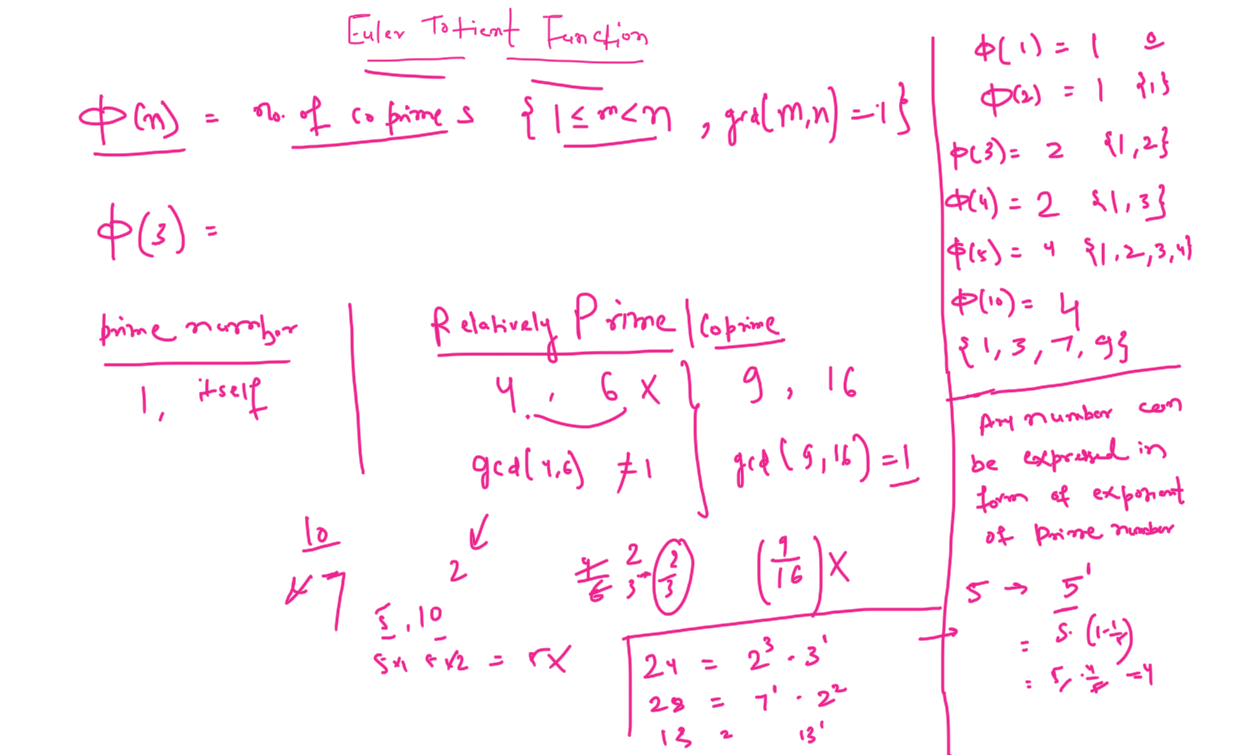 Euler Totient Function
φ(n) = no. of coprimes {1≤m<n, gcd(m,n)=1}
φ(3) =
prime number
1, itself
Relatively Prime | Coprime
4, 6 X
gcd(4,6) ≠ 1
2
9, 16
gcd(9,16) = 1
10
7
5, 10
5×1 5×2 = 5X
4/6 2/3 → 2/3
(9/16) X
24 = 2³ · 3¹
28 = 7¹ · 2²
13 = 13¹
φ(1) = 1
φ(2) = 1 {1}
φ(3) = 2 {1,2}
φ(4) = 2 {1,3}
φ(5) = 4 {1,2,3,4}
φ(10) = 4
{1,3,7,9}
Any number can
be expressed in
form of exponent
of prime number
5 → 5¹
= 5·(1-1/5)
= 5·4/5 = 4